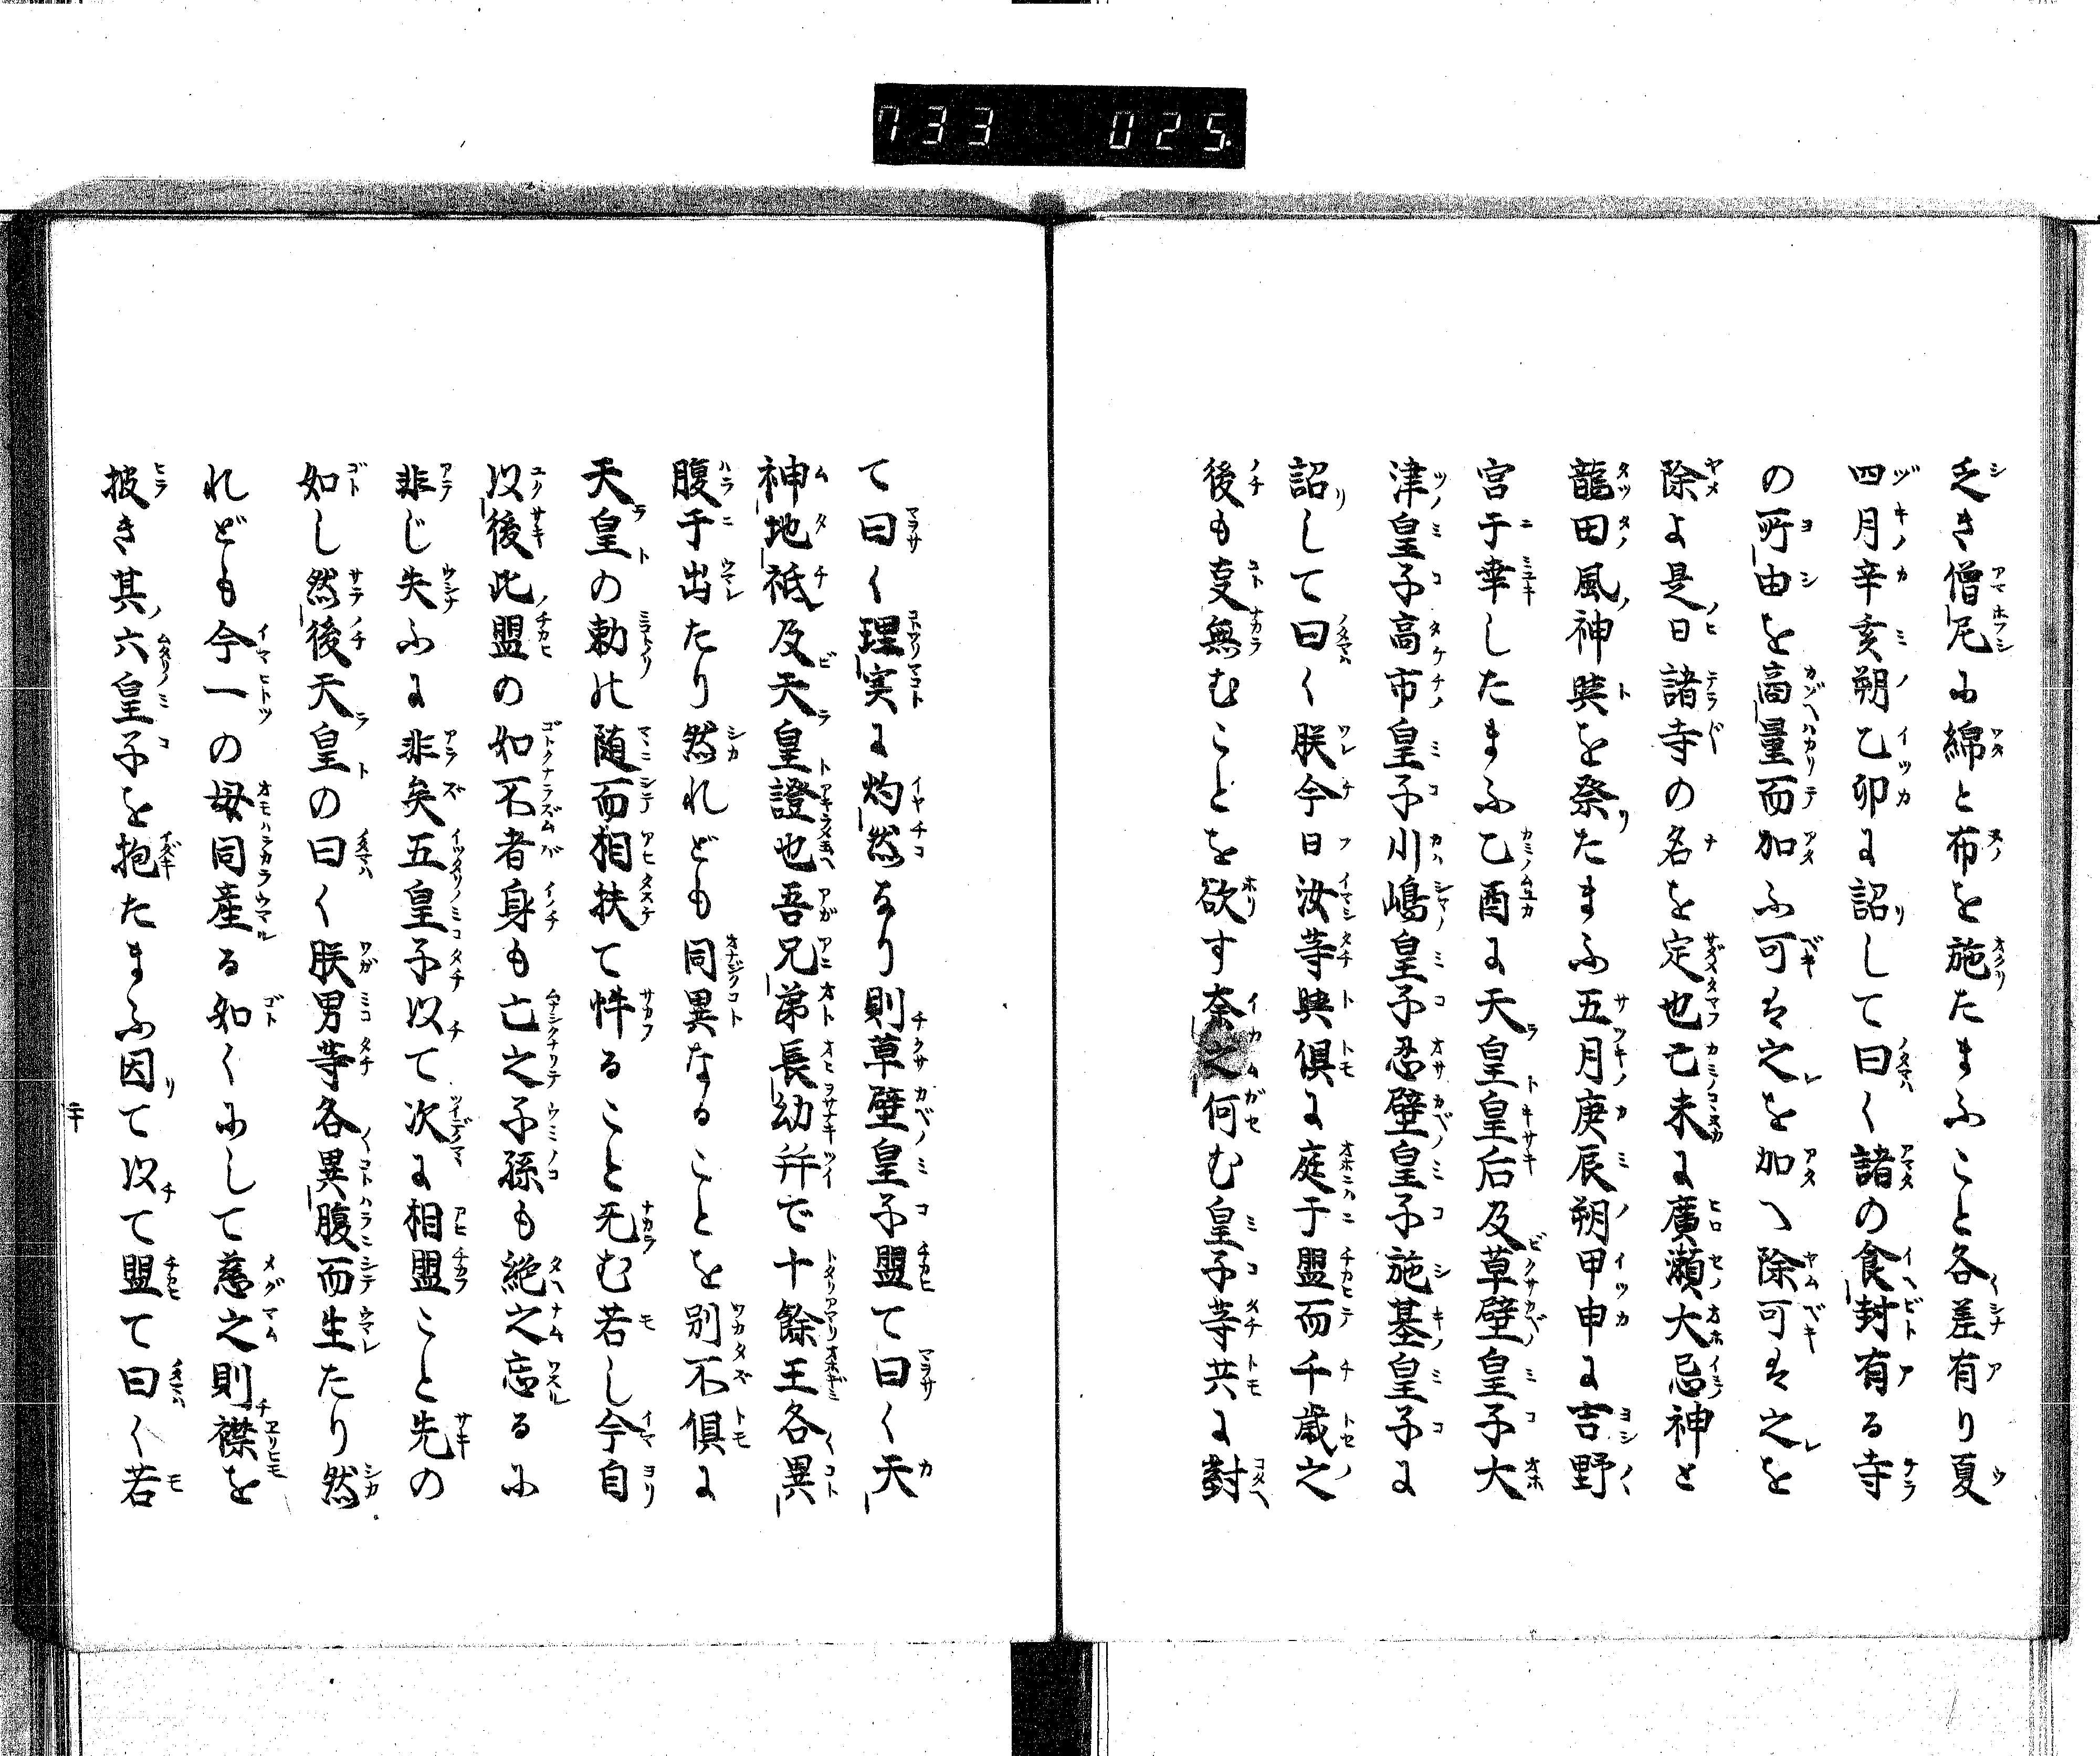 733 025
乏き僧尼に綿と布を施たまふこと各差有り夏
四月辛亥朔乙卯に詔して曰く諸の食封有る寺
の所由を商量而加ふ可は之を加へ除可は之を
除よ是日諸寺の名を定也己未に廣瀬大忌神と
龍田風神與を祭たまふ五月庚辰朔甲申に吉野
宮于幸したまふ乙酉に天皇皇后及草壁皇子大
津皇子高市皇子川嶋皇子忍壁皇子施基皇子に
詔して曰く朕今日汝等與倶に庭于盟而千歳之
後も事無むことを欲す奈之何む皇子等共に對
て曰く理実に灼然なり則草壁皇子盟て曰く天
神地祇及天皇證也吾兄弟長幼并で十餘王各異
腹于出たり然れども同異なることを別不倶に
天皇の勅の随而相扶て忤ること无む若し今自
以後此盟の如不者身も亡之子孫も絶之忘るに
非じ失ふに非矣五皇子以て次に相盟こと先の
如し然後天皇の曰く朕男等各異腹而生たり然
れども今一の母同産る如くにして慈之則襟を
披き其六皇子を抱たまふ因て以て盟て曰く若